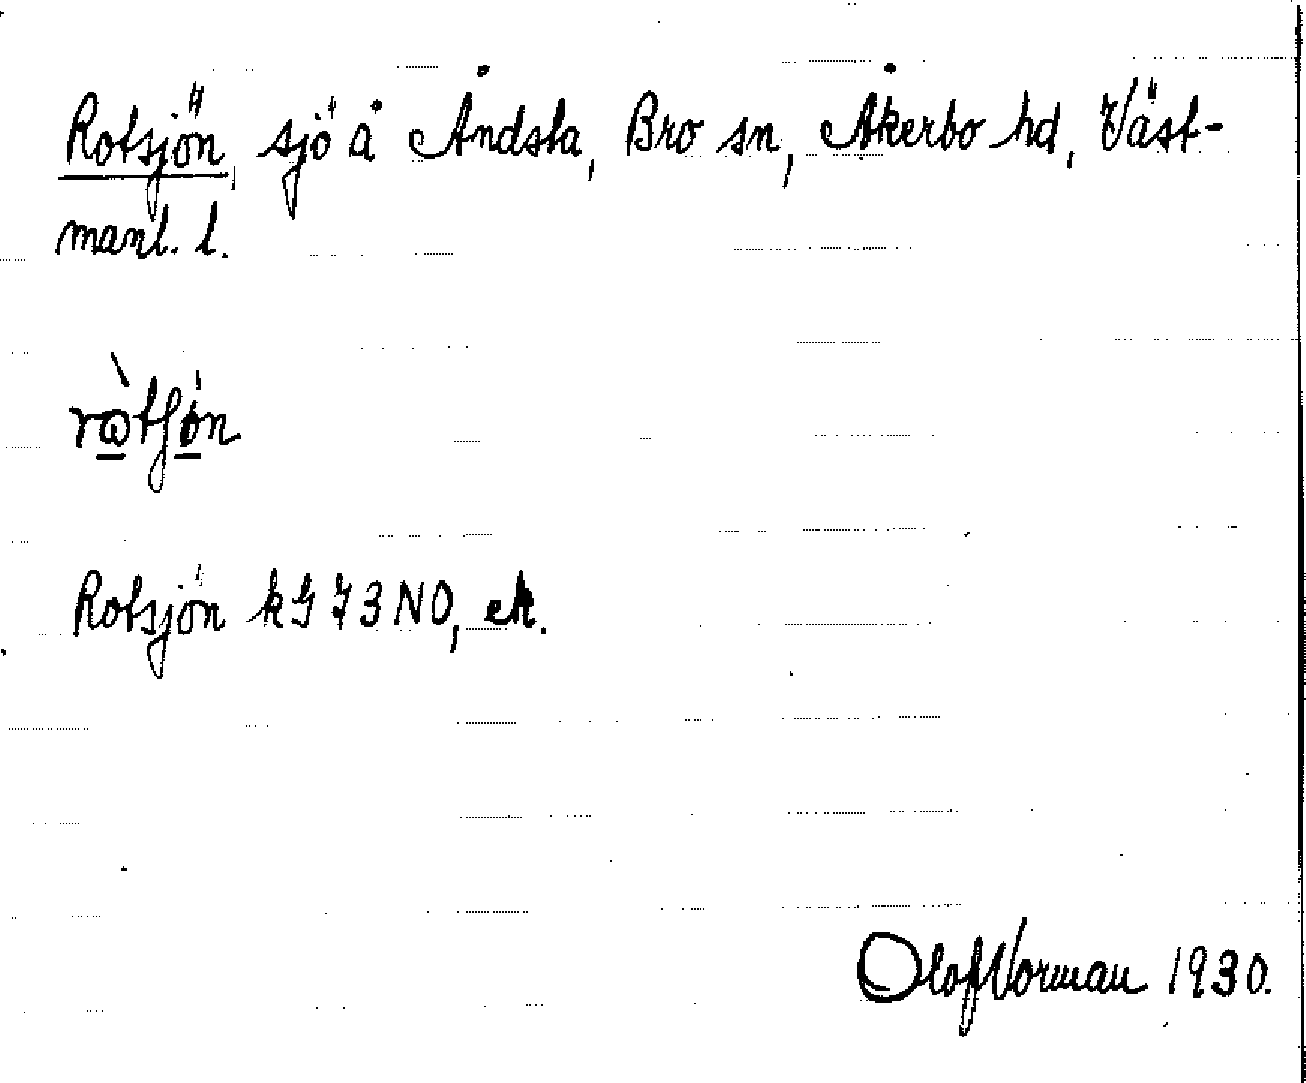 Rotsjön, sjö å Åndsta, Bro sn, Åkerbo hd, Väst-
manl. l.
Rotsjön 73 NO, ek.
Olof Vorman 1930.